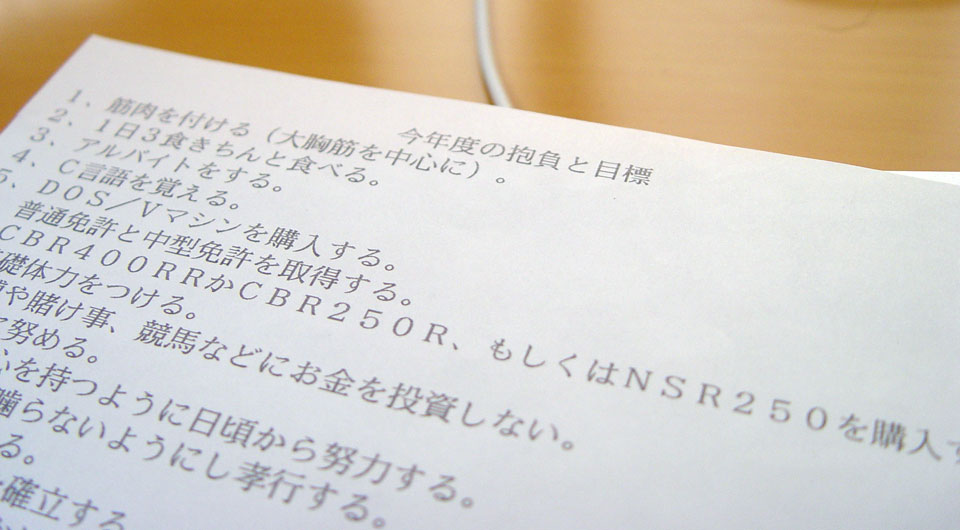 今年度の抱負と目標
1、筋肉を付ける（大胸筋を中心に）。
2、1日3食きちんと食べる。
3、アルバイトをする。
4、C言語を覚える。
5、DOS／Vマシンを購入する。
普通免許と中型免許を取得する。
CBR400RRかCBR250R、もしくはNSR250を購入す
礎体力をつける。
や賭け事、競馬などにお金を投資しない。
努める。
を持つように日頃から努力する。
らないようにし孝行する。
る。
確立する